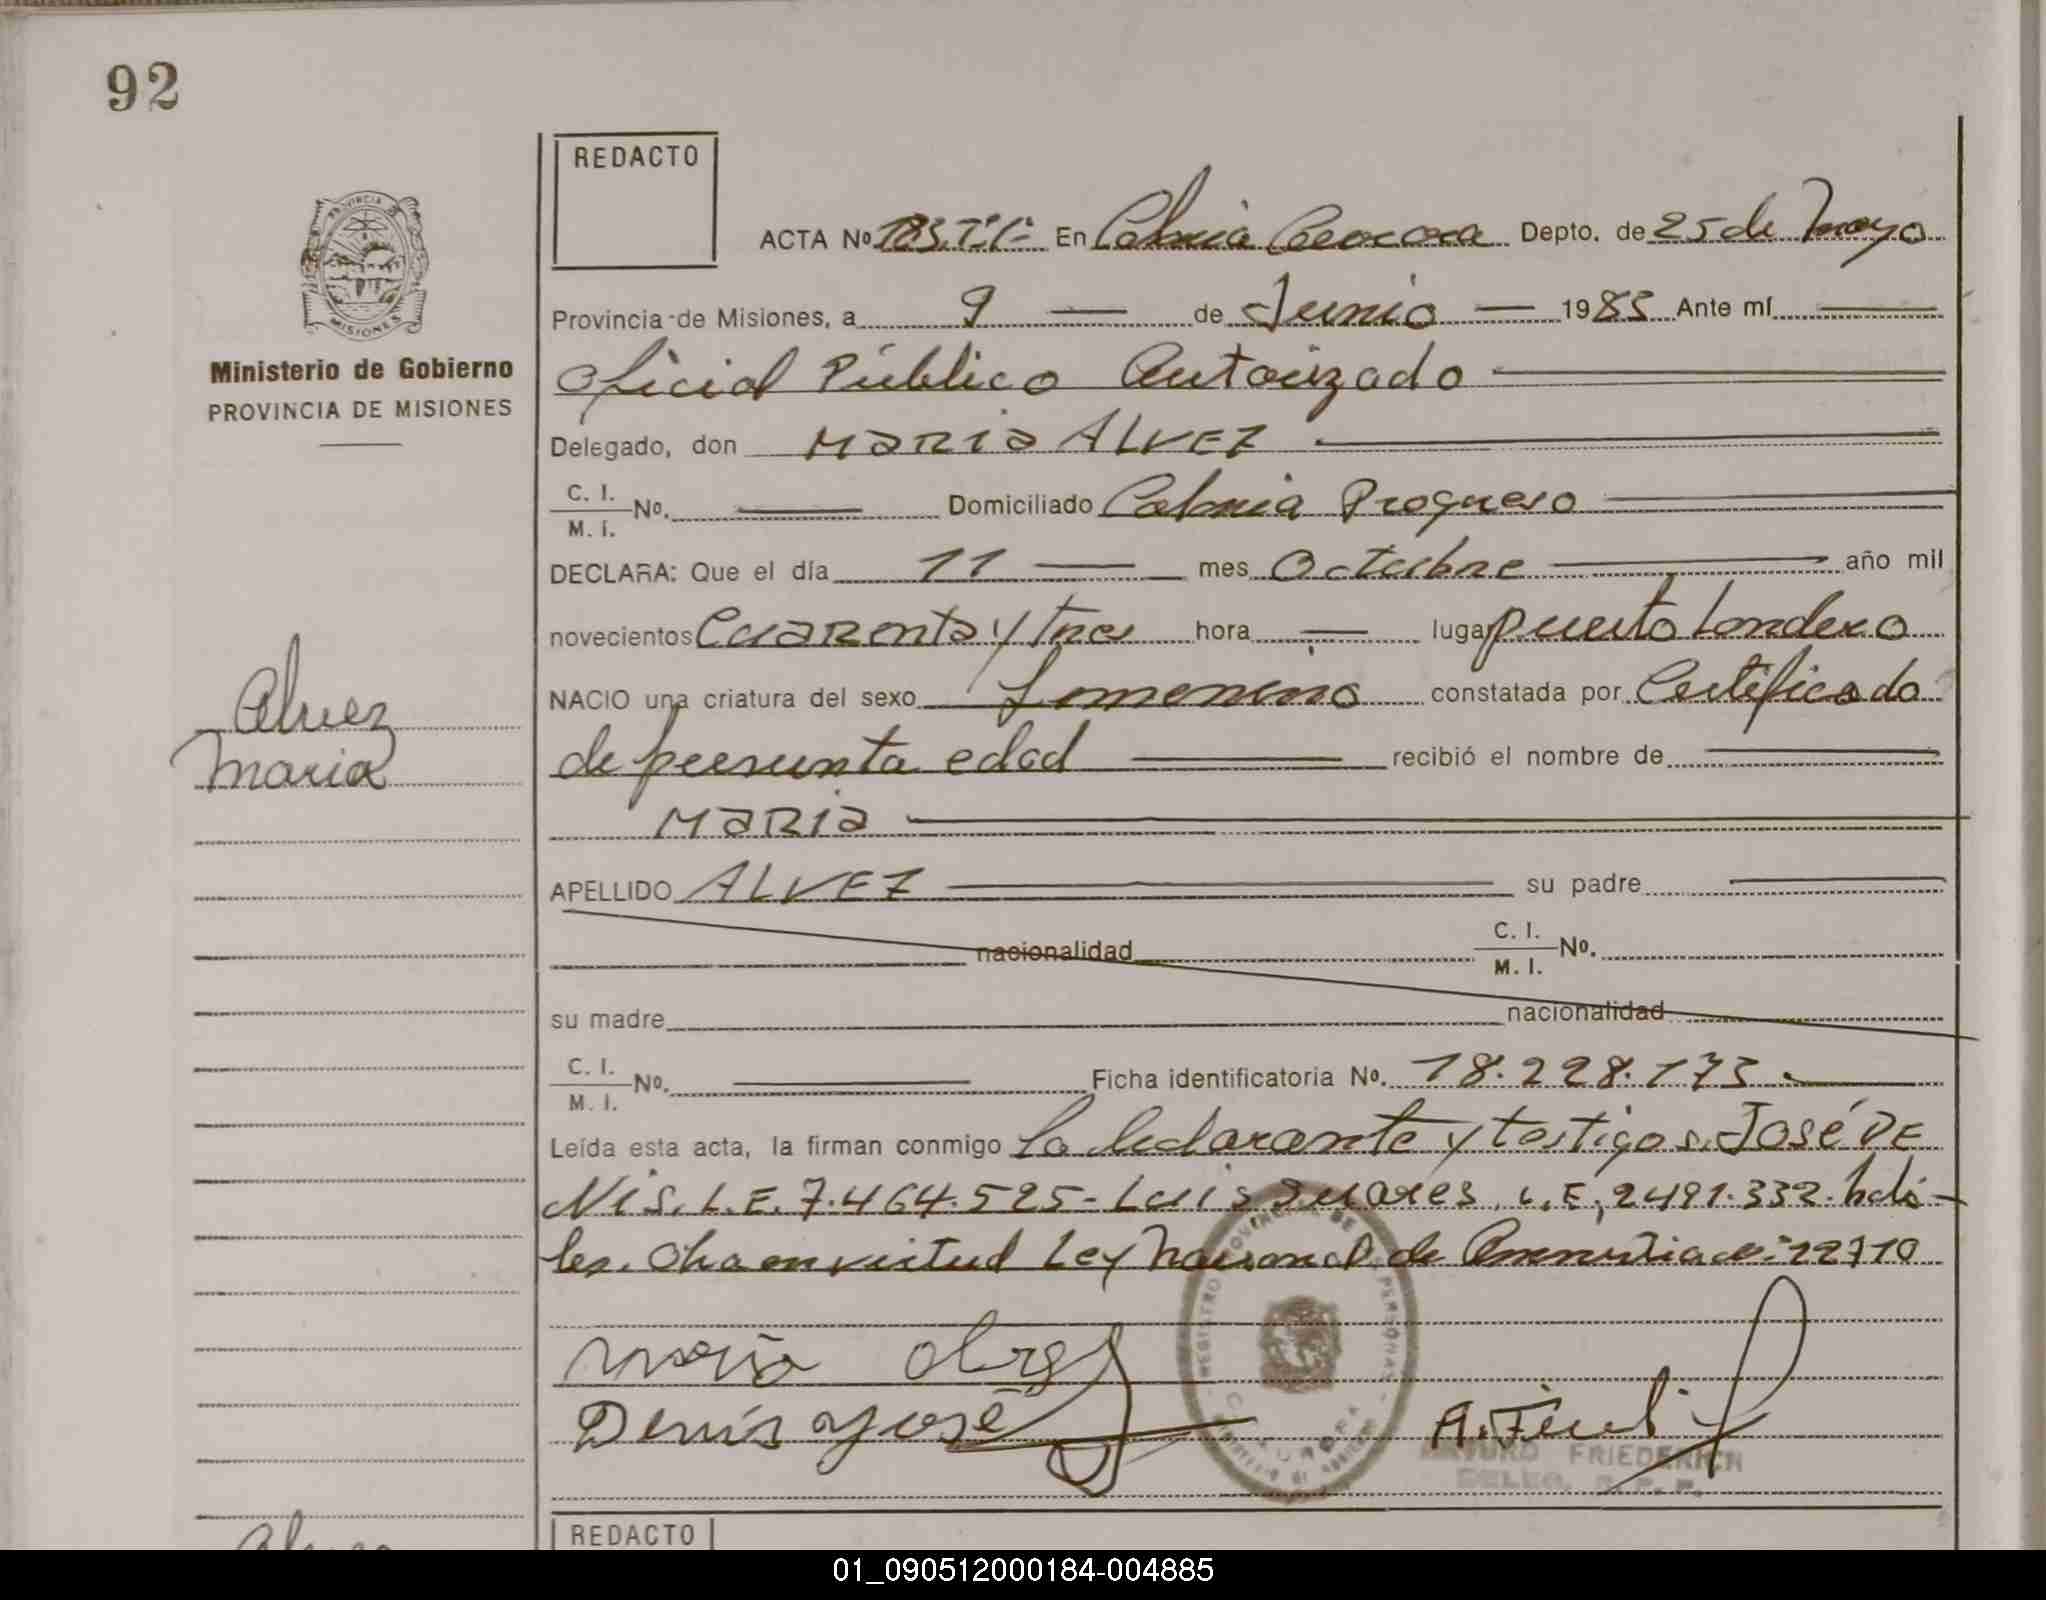 92
REDACTO
PROVINCIA DE
MISIONES
Ministerio de Gobierno
PROVINCIA DE MISIONES
ACTA Nº 183.Tº1º En Colonia Aurora Depto. de 25 de Mayo
Provincia de Misiones, a 9 de Junio 1985 Ante mí
Oficial Público Autorizado
Delegado, don MARIA ALVEZ
C. I. M. I. Nº. Domiciliado Colonia Progreso
DECLARA: Que el día 11 mes Octubre año mil
novecientos Cuarenta y Tres hora lugar puerto Londero
NACIO una criatura del sexo femenino constatada por Certificado
de presunta edad recibió el nombre de
MARIA
APELLIDO ALVEZ su padre
nacionalidad C. I. M. I. Nº.
su madre nacionalidad
C. I. M. I. Nº. Ficha identificatoria Nº. 18.228.173
Leída esta acta, la firman conmigo La declarante y testigos. José DE
NIS. L.E. 7.464.525- Luis Suares, L.E, 2491.332. hábi-
les. en virtud Ley Nacional de Amnistia nº 22710
Alvez
Maria
Maria
Denis José
REGISTRO PROVINCIAL DE PERSONAS
ARTURO FRIEDERICH
DELEG. R. P. P.
REDACTO
01_090512000184-004885